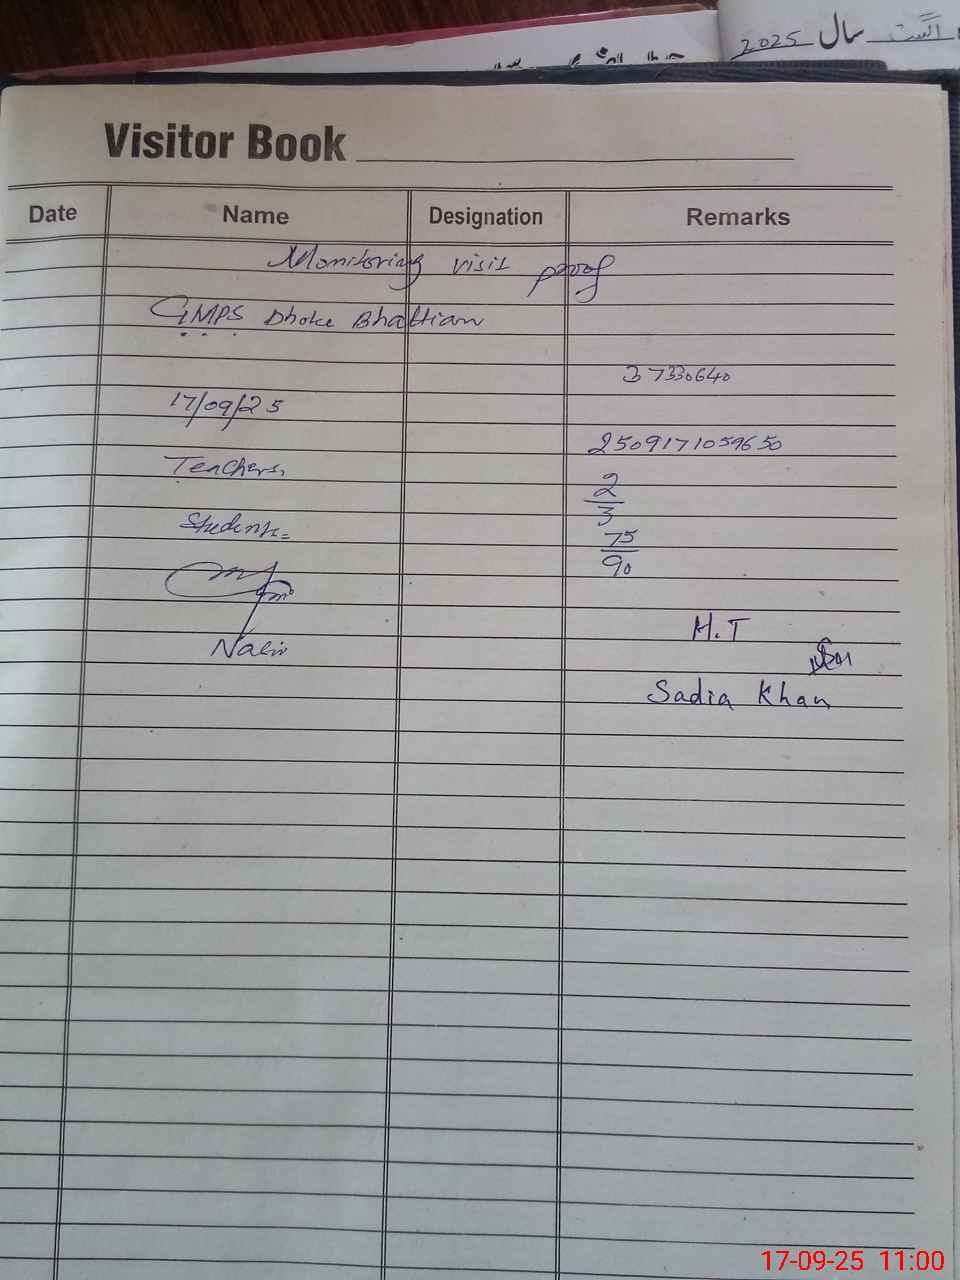 2025 سال اگست
Visitor Book
Date Name Designation Remarks
Monitoring visit proof
GMPS Dhoke Bhattian
37330640
17/09/25
2509171059650
Teachers,
2
3
Students=
75
90
H.T
Sadia Khan
17-09-25 11:00